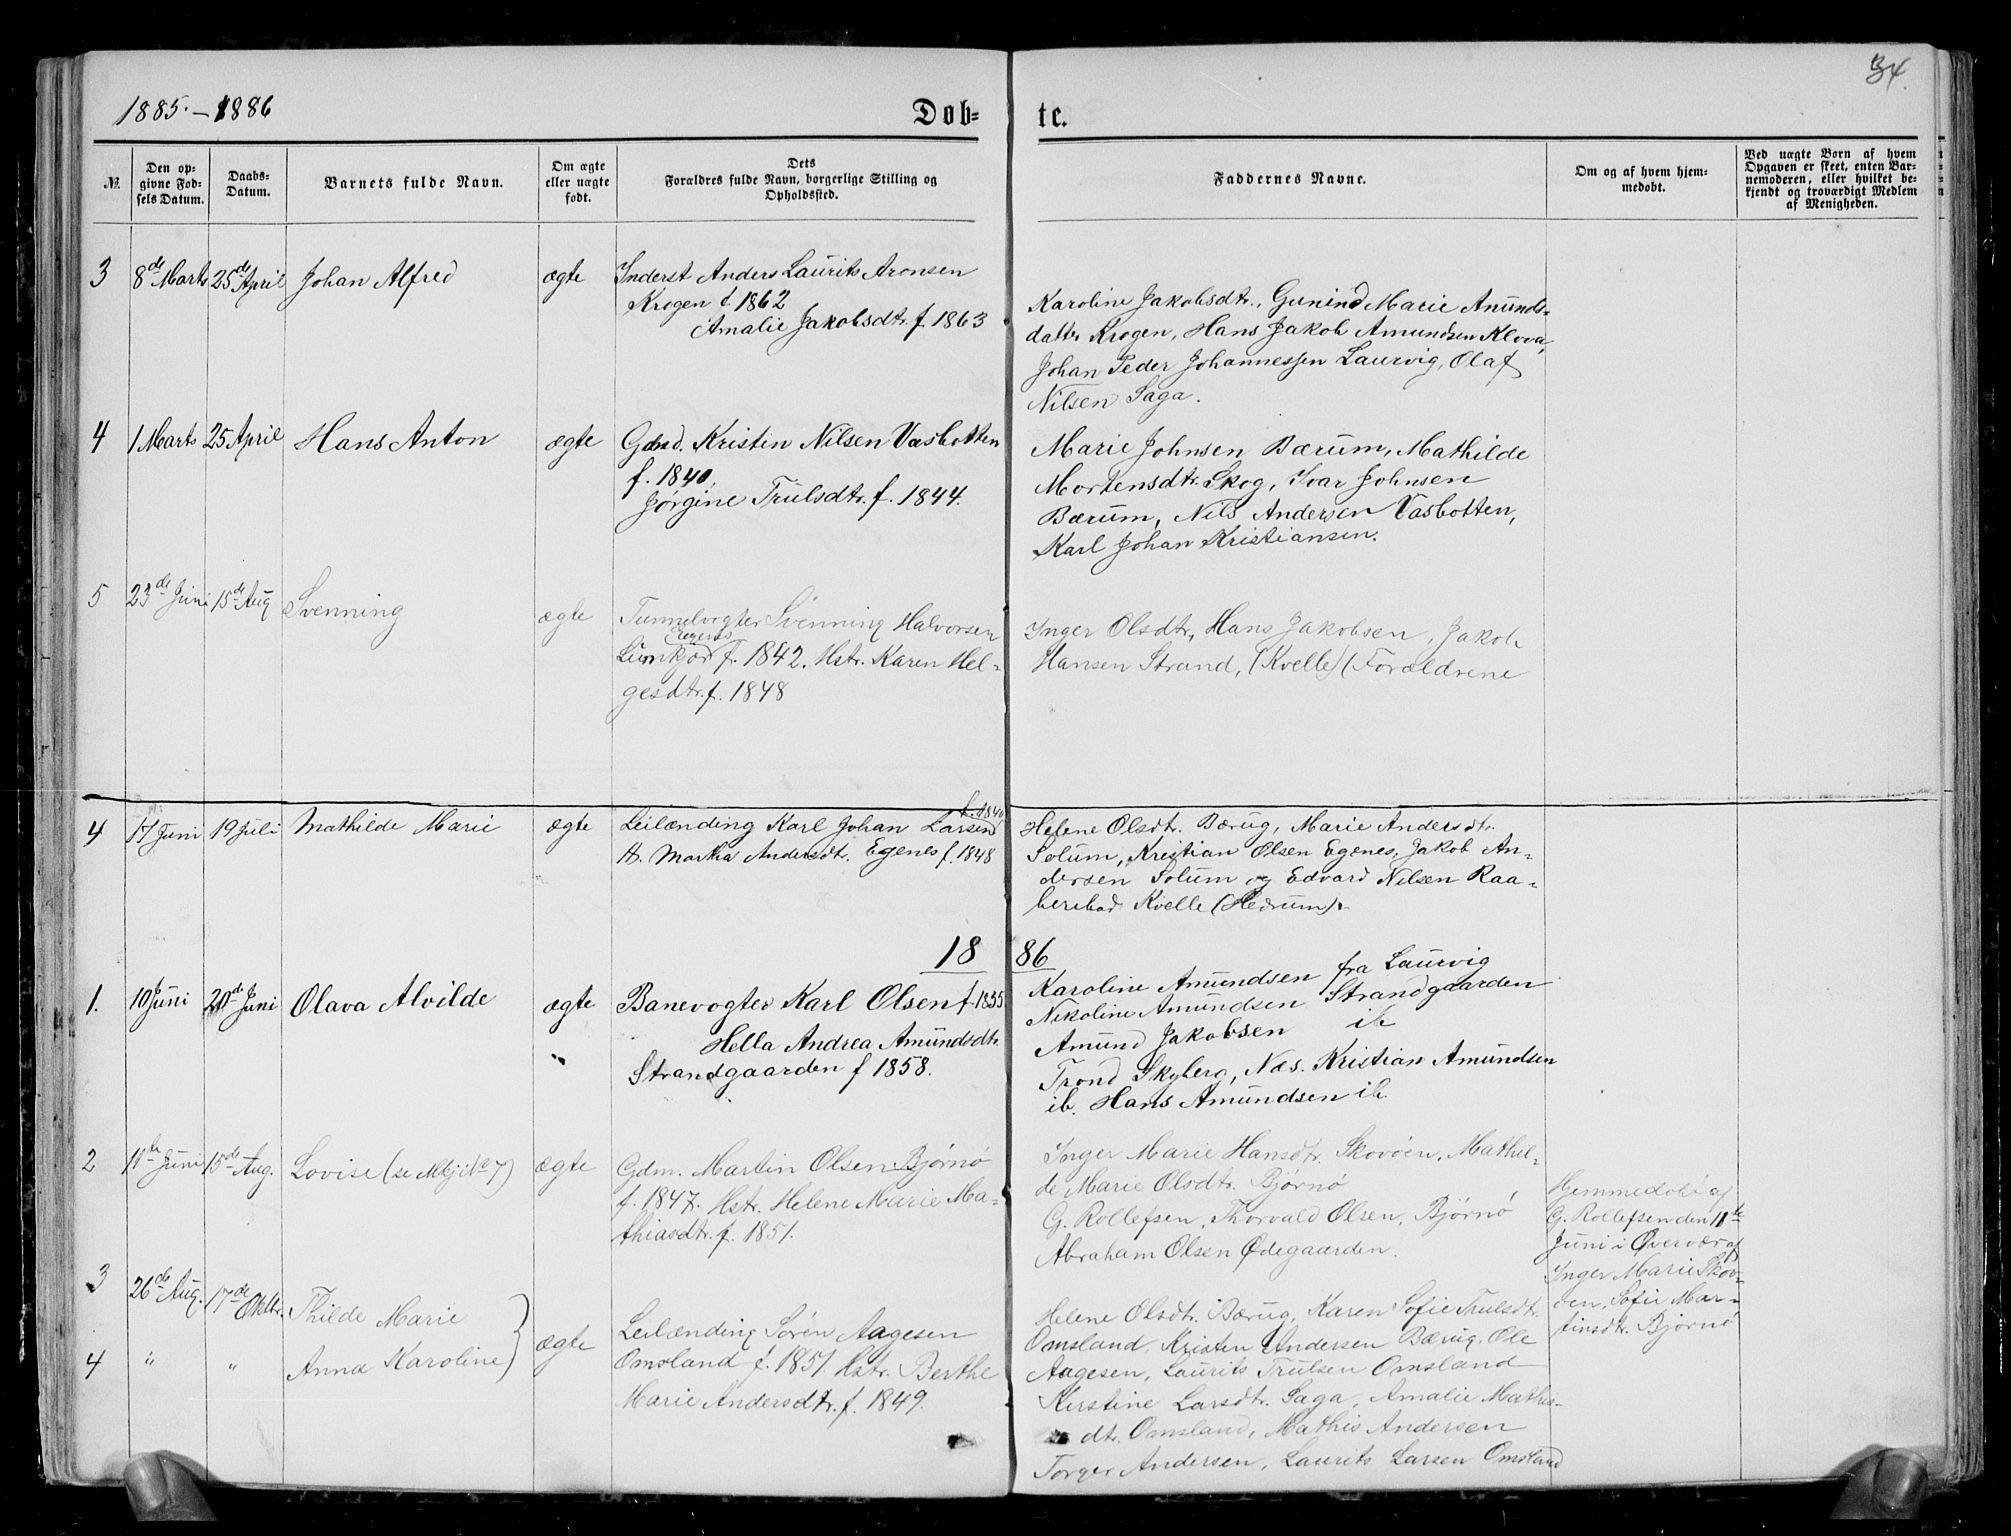 34.
1885. – 1886
Døb= te.
№.
Den op-
givne Fød-
sels Datum.
Daabs-
Datum.
Barnets fulde Navn.
Om ægte
eller uægte
født.
Dets
Forældres fulde Navn, borgerlige Stilling og
Opholdssted.
Faddernes Navne.
Om og af hvem hjem-
medøbt.
Ved uægte Børn af hvem
Opgaven er skeet, enten Bar-
nemoderen, eller hvilket be-
kjendt og troværdigt Medlem
af Menigheden.
3 8de Marts 25de April Johan Alfred ægte
Inderst Anders Laurits Aronsen
Krogen f. 1862
Amalie Jakobsdtr. f. 1863
Karoline Jakobsdtr., Gunind Marie Amunds-
datter Krogen, Hans Jakob Amundsen Klova,
Johan Peder Johannessen Laurvig, Olaf
Nilsen Saga.
4 1 Marts 25 April Hans Anton ægte
Gaard. Kristen Nilsen Vasbotten
f. 1840,
Jørgine Trulsdtr. f. 1844.
Marie Johnsen Bærum, Mathilde
Mortensdtr. Skog, Ivar Johnsen
Bærum, Nils Andersen Vasbotten,
Karl Johan Kristiansen.
5 23de Juni 15de Aug Svenning ægte
Tunnelvogter Svenning Halvorsen
Egenes
Lumkjød f. 1842. Hstr. Karen Hel-
gesdtr. f. 1848
Inger Olsdtr, Hans Jakobsen, Jakob
Hansen Strand, (Kvelle) (Forældrene
4 17 Juni 19 Juli Mathilde Marie ægte
f. 1840
Leilænding Karl Johan Larsen
H. Martha Andersdtr. Egenes f. 1848
Helene Olsdtr. Bærug, Marie Andersdtr.
Solum, Kristian Olsen Egenes, Jakob An-
dersen Solum og Edvard Nilsen Raa-
beribad Kvelle (Hedrum).
18 86
1. 10 Juni 20de Juni Olava Alvilde ægte
Banevogter Karl Olsen f. 1855
Hella Andrea Amundsdtr.
"
Strandgaarden f 1858.
Karoline Amundsen fra Laurvig
Nikoline Amundsen Strandgaarden
Amund Jakobsen ib
Trond Skyberg, Næs. Kristian Amundsen
ib. Hans Amundsen ib
2 11te Juni 15de Aug. Lovise (se Mkj № 7) ægte
Gdm. Martin Olsen Bjørnø
f. 1847. Hstr. Helene Marie Ma-
thiasdtr. f. 1851.
Inger Marie Hansdtr. Skovøen, Mathil-
de Marie Olsdtr. Bjørnø
G. Rollefsen, Thorvald Olsen, Bjørnø
Abraham Olsen Ødegaarden.
Hjemmedøbt af
G. Rollefsen den 11te
Juni i Overvær af
Inger Marie Skov-
øen, Sofie Mar-
tinsdtr. Bjørnø
3 26de Aug. 17de Oktbr. Thilde Marie
4 " " Anna Karoline } ægte
Leilænding Sören Aagesen
Omsland f. 1851 Hstr. Berthe
Marie Andersdtr. f. 1849.
Helene Olsdtr. Bærug, Karen Sofie Trulsdtr.
Omsland, Kristen Andersen Bærug, Ole
Aagesen, Laurits Trulsen Omsland
Kirstine Larsdtr. Saga, Amalie Mathis-
dtr. Omsland, Mathis Andersen
Torger Andersen, Laurits Larsen Omsland